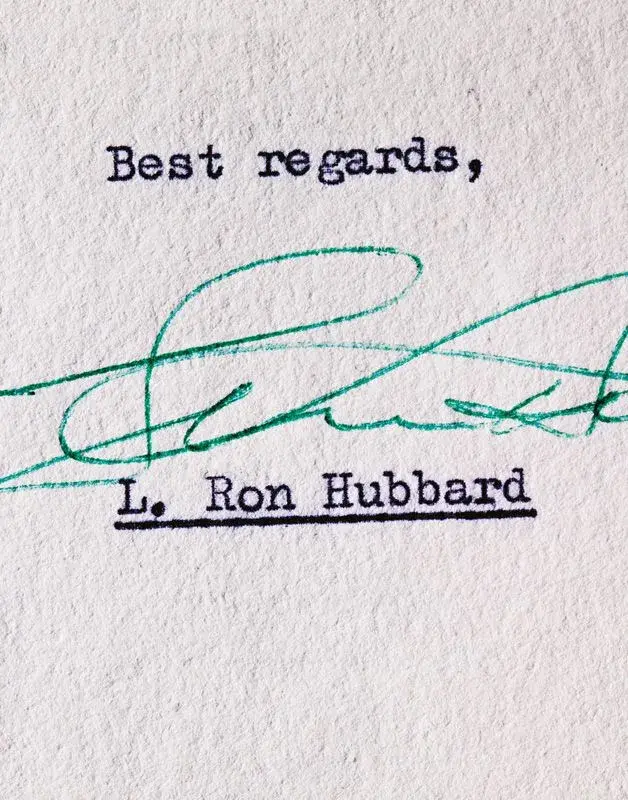 Best regards,
L. Ron Hubbard